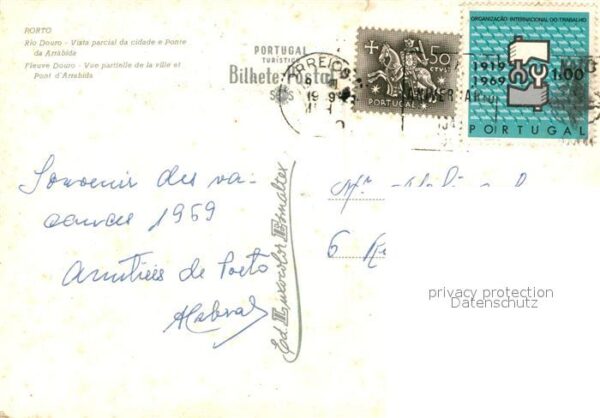 PORTO
Rio Douro - Vista parcial da cidade e Ponte
da Arrábida
Fleuve Douro - Vue partielle de la ville et
Pont d'Arrabida
PORTUGAL
TURÍSTICO
Bilhete Postal
CORREIOS
50
CTVS
PORTUGAL
ORGANIZAÇÃO INTERNACIONAL DO TRABALHO
1919
1969
1$00
PORTUGAL
Souvenir des va-
cances 1969
Amitiés de Porto
Mr.
6
privacy protection
Datenschutz